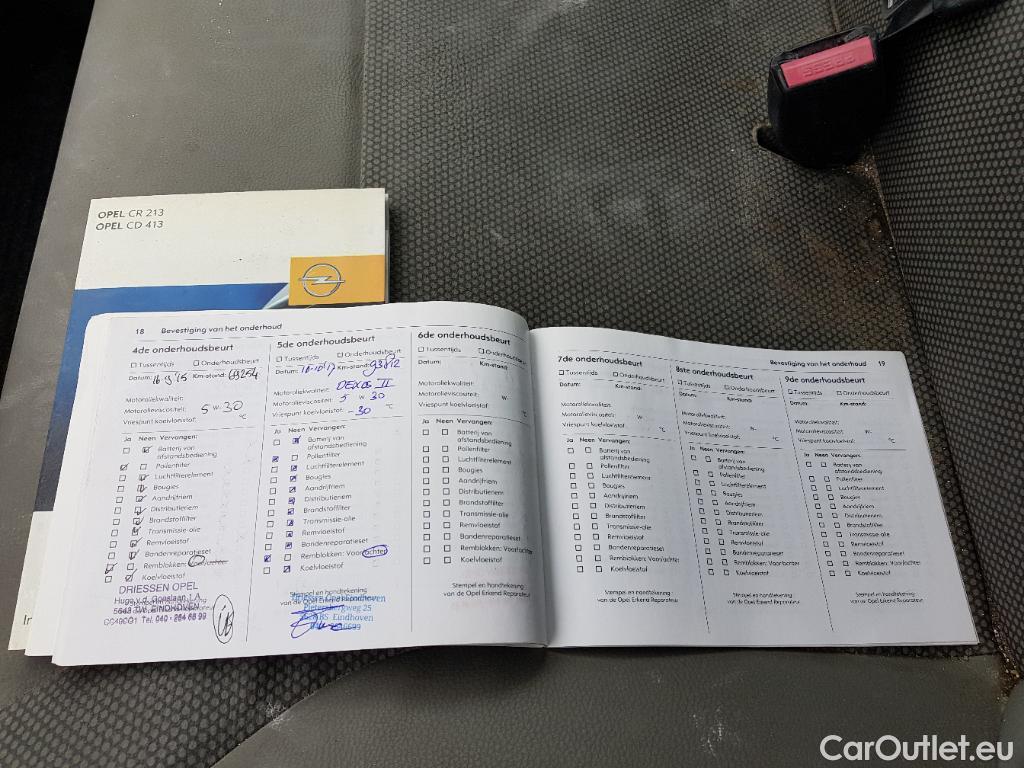 PRESS
OPEL CR 213
OPEL CD 413
18 Bevestiging van het onderhoud
4de onderhoudsbeurt
Tussentijds Onderhoudsbeurt
Datum: Km-stand: 69254
Motoroliekwaliteit:
Motorolieviscositeit: 5 W-30
Vriespunt koelvloeistof: °C
Ja Neen Vervangen:
Batterij van
afstandsbediening
Pollenfilter
Luchtfilterelement
Bougies
Aandrijfriem
Distributieriem
Brandstoffilter
Transmissie-olie
Remvloeistof
Bandenreparatieset
Remblokken: Voor/achter
Koelvloeistof
DRIESSEN OPEL
5643 TW EINDHOVEN
5de onderhoudsbeurt
Tussentijds Onderhoudsbeurt
Datum: 18-10/17 Km-stand: 93812
Motoroliekwaliteit: DEXOS II
Motorolieviscositeit: 5 W 30
Vriespunt koelvloeistof: -30 °C
Ja Neen Vervangen:
Batterij van
afstandsbediening
Pollenfilter
Luchtfilterelement
Bougies
Aandrijfriem
Distributieriem
Brandstoffilter
Transmissie-olie
Remvloeistof
Bandenreparatieset
Remblokken: Voor/achter
Koelvloeistof
Stempel en handtekening
van de Opel Erkend Reparateur
Eindhoven
6de onderhoudsbeurt
Tussentijds Onderhoudsbeurt
Datum: Km-stand:
Motoroliekwaliteit:
Motorolieviscositeit: W-
Vriespunt koelvloeistof: °C
Ja Neen Vervangen:
Batterij van
afstandsbediening
Pollenfilter
Luchtfilterelement
Bougies
Aandrijfriem
Distributieriem
Brandstoffilter
Transmissie-olie
Remvloeistof
Bandenreparatieset
Remblokken: Voor/achter
Koelvloeistof
Stempel en handtekening
van de Opel Erkend Reparateur
Bevestiging van het onderhoud 19
7de onderhoudsbeurt
Tussentijds Onderhoudsbeurt
Datum: Km-stand:
Motoroliekwaliteit:
Motorolieviscositeit: W-
Vriespunt koelvloeistof: °C
Ja Neen Vervangen:
Batterij van
afstandsbediening
Pollenfilter
Luchtfilterelement
Bougies
Aandrijfriem
Distributieriem
Brandstoffilter
Transmissie-olie
Remvloeistof
Bandenreparatieset
Remblokken: Voor/achter
Koelvloeistof
Stempel en handtekening
van de Opel Erkend Reparateur
8ste onderhoudsbeurt
Tussentijds Onderhoudsbeurt
Datum: Km-stand:
Motoroliekwaliteit:
Motorolieviscositeit: W-
Vriespunt koelvloeistof: °C
Ja Neen Vervangen:
Batterij van
afstandsbediening
Pollenfilter
Luchtfilterelement
Bougies
Aandrijfriem
Distributieriem
Brandstoffilter
Transmissie-olie
Remvloeistof
Bandenreparatieset
Remblokken: Voor/achter
Koelvloeistof
Stempel en handtekening
van de Opel Erkend Reparateur
9de onderhoudsbeurt
Tussentijds Onderhoudsbeurt
Datum: Km-stand:
Motoroliekwaliteit:
Motorolieviscositeit: W-
Vriespunt koelvloeistof: °C
Ja Neen Vervangen:
Batterij van
afstandsbediening
Pollenfilter
Luchtfilterelement
Bougies
Aandrijfriem
Distributieriem
Brandstoffilter
Transmissie-olie
Remvloeistof
Bandenreparatieset
Remblokken: Voor/achter
Koelvloeistof
Stempel en handtekening
van de Opel Erkend Reparateur
CarOutlet.eu